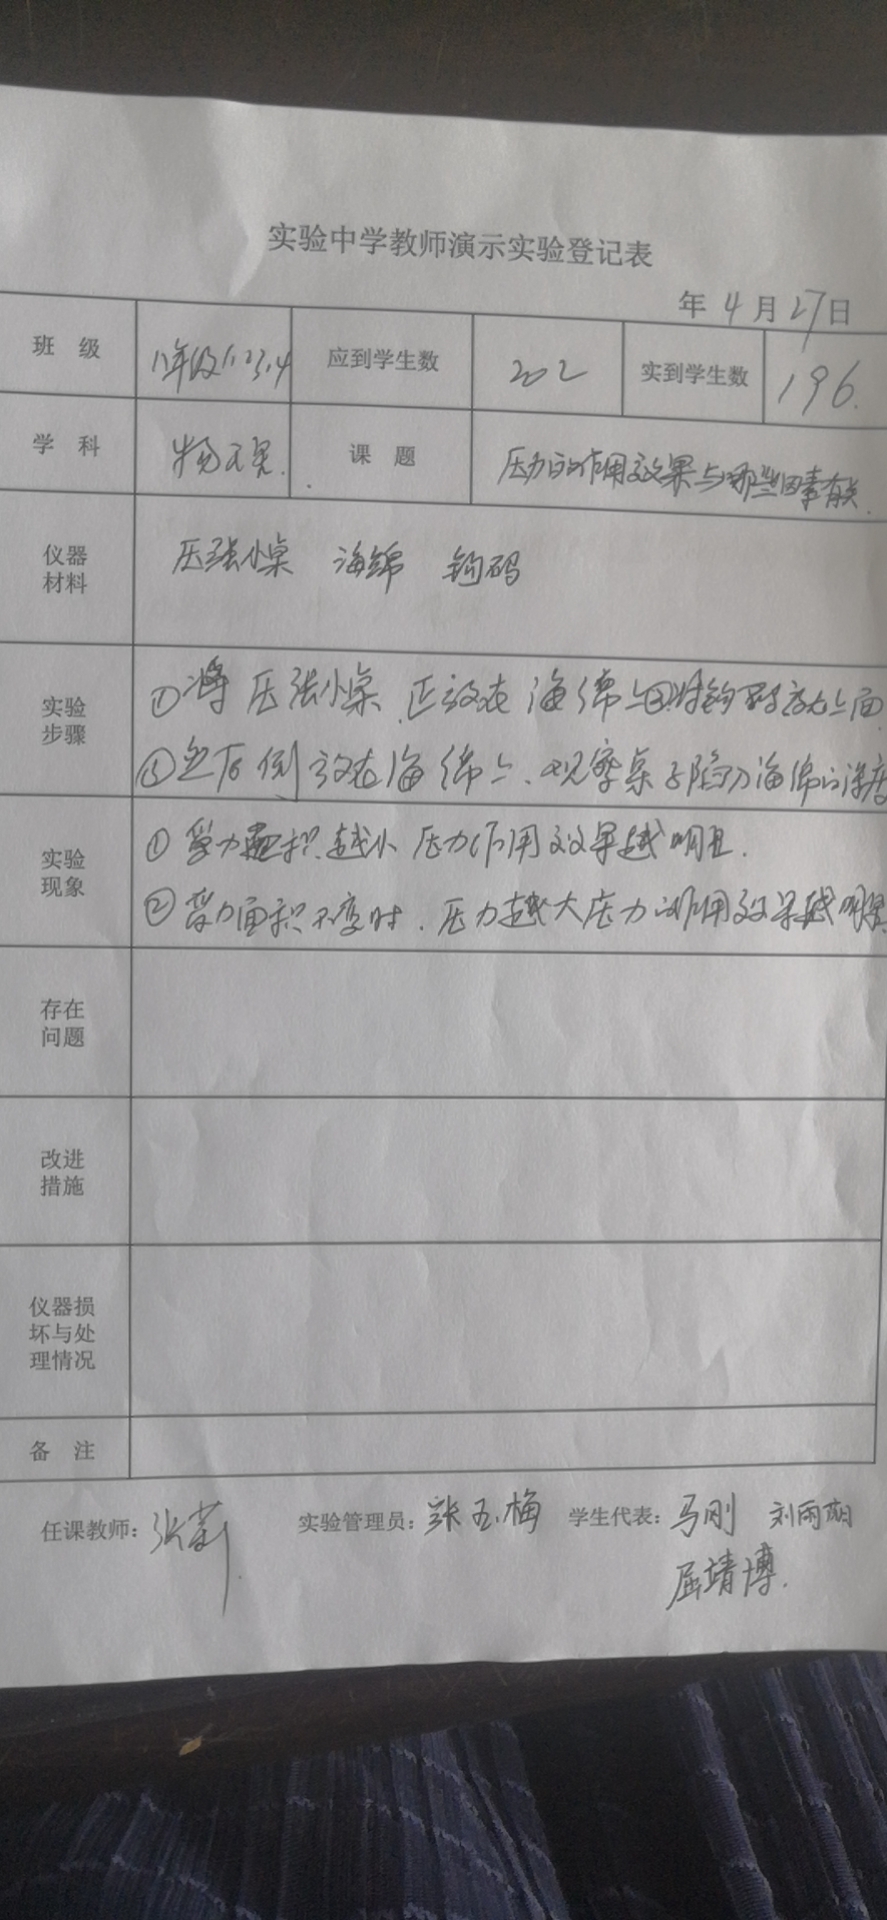 实验中学教师演示实验登记表
年 4 月 27 日
班 级 八年级1.2.3.4 应到学生数 202 实到学生数 196.
学 科 物理 课 题 压力的作用效果与哪些因素有关.
仪器材料 压强小桌 海绵 钩码
实验步骤 ①将压强小桌正放在海绵上②将钩码放上面
③然后倒放在海绵上.观察桌子陷入海绵的深度
实验现象 ①受力面积越小压力作用效果越明显.
②受力面积不变时.压力越大压力的作用效果越明显
存在问题
改进措施
仪器损坏与处理情况
备 注
任课教师: 张 实验管理员: 张玉梅 学生代表: 马刚 刘雨
屈靖博.